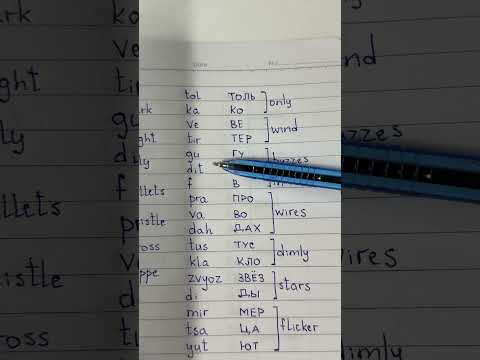 tol ТОЛЬ only
ka КО
ve ВЕ wind
tir ТЕР
gu ГУ
dit
f В
pra ПРО
va ВО wires
dah ДАХ
tus ТУС dimly
kla КЛО
zvyoz ЗВЁЗ stars
di ДЫ
mir МЕР
tsa ЦА flicker
yut ЮТ